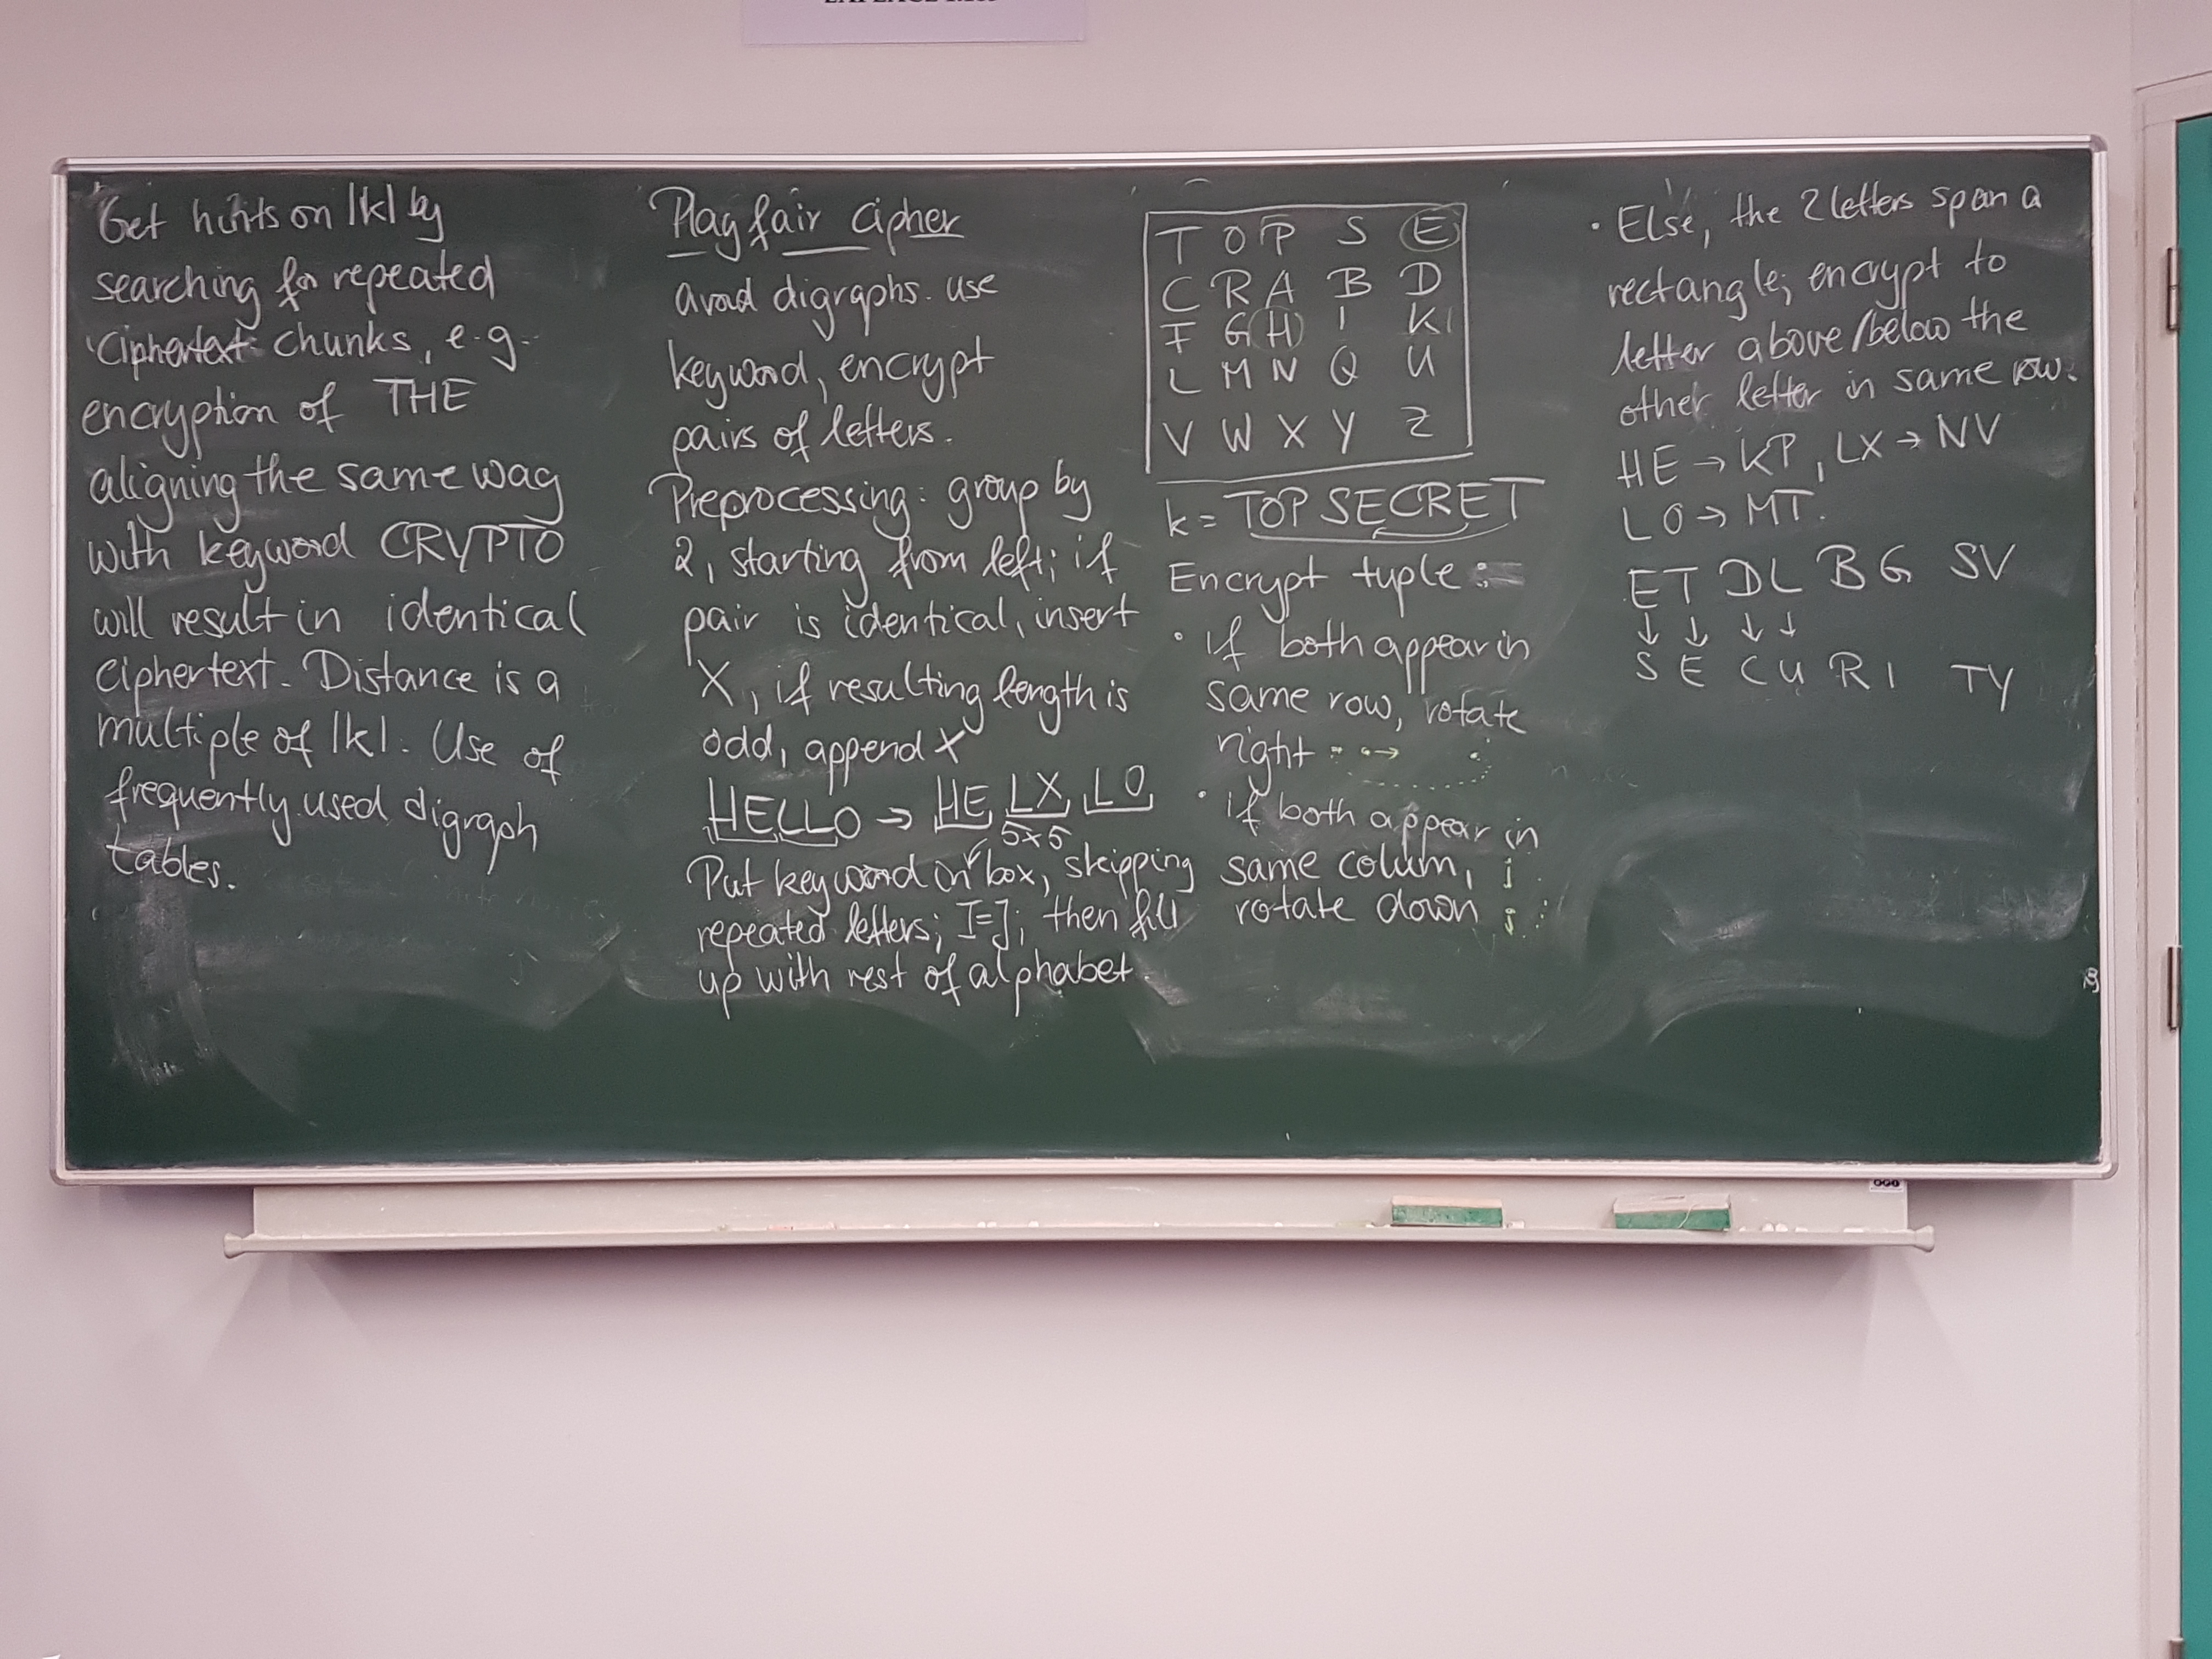 Get hints on |k| by
searching for repeated
ciphertext chunks, e.g.
encryption of THE
aligning the same way
with keyword CRYPTO
will result in identical
ciphertext. Distance is a
multiple of |k|. Use of
frequently used digraph
tables.
Playfair Cipher
avoid digraphs. use
keyword, encrypt
pairs of letters.
Preprocessing: group by
2, starting from left; if
pair is identical, insert
X, if resulting length is
odd, append X
HELLO → HE LX LO
5x5
Put keyword in box, skipping
repeated letters; I=J; then fill
up with rest of alphabet.
T O P S E
C R A B D
F G H I K
L M N Q U
V W X Y Z
k = TOP SECRET
Encrypt tuple:
• if both appear in
same row, rotate
right
• if both appear in
same colum,
rotate down
• Else, the 2 letters span a
rectangle; encrypt to
letter above/below the
other letter in same row.
HE → KP, LX → NV
LO → MT.
ET DL BG SV
↓ ↓ ↓ ↓
SE CU RI TY